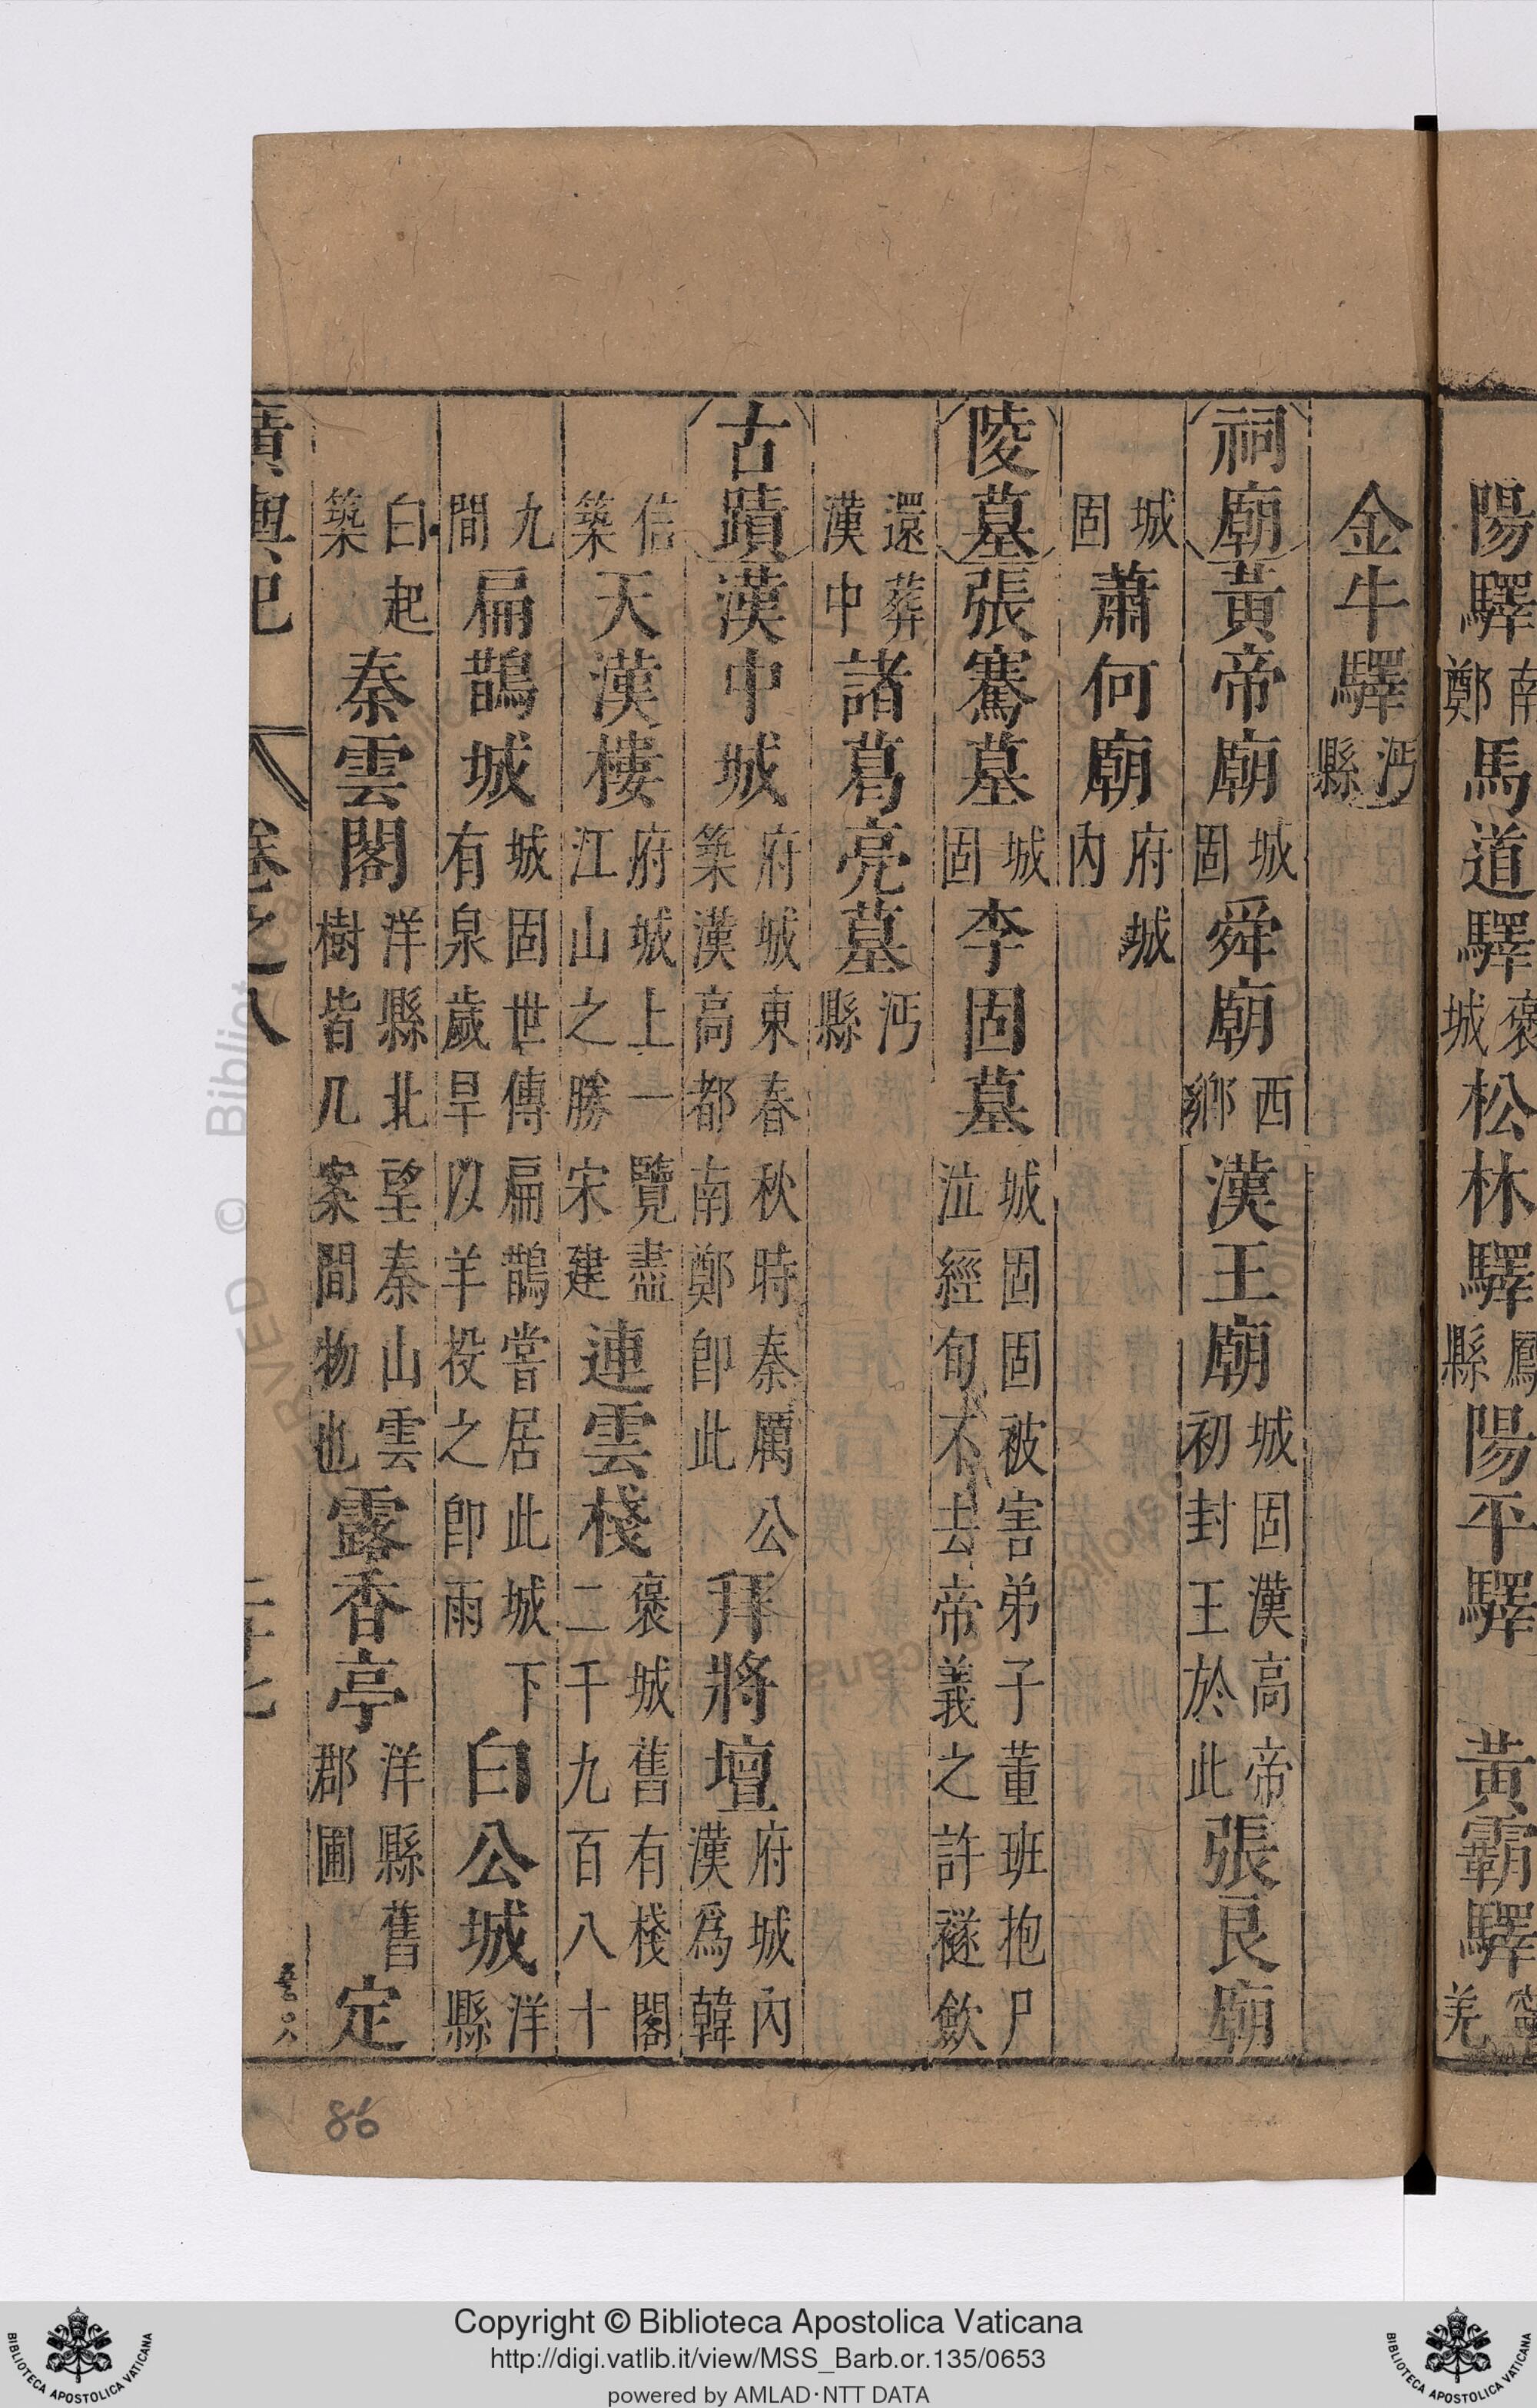 陽驛南鄭馬道驛褒城松林驛鳳縣陽平驛　黃霸驛寧羌
金牛驛沔縣
祠廟黃帝廟城固舜廟西鄉漢王廟城固漢高帝初封王於此張良廟
城固蕭何廟府城內
陵墓張騫墓城固李固墓城固固被害弟子董班抱尸泣經旬不去帝義之許襚歛
還葬漢中諸葛亮墓沔縣
古蹟漢中城府城東春秋時秦厲公築漢高都南鄭卽此拜將壇府城內漢爲韓
信築天漢樓府城上一覽盡江山之勝宋建連雲棧褒城舊有棧閣二千九百八十
九間扁鵲城城固世傳扁鵲嘗居此城下有泉歲旱以羊投之卽雨白公城洋縣
白起築秦雲閣洋縣北望秦山雲樹皆几案間物也露香亭洋縣舊郡圃定
廣輿記　卷之八　二十七
86
Copyright © Biblioteca Apostolica Vaticana
http://digi.vatlib.it/view/MSS_Barb.or.135/0653
powered by AMLAD·NTT DATA
BIBLIOTECA APOSTOLICA VATICANA
BIBLIOTECA APOSTOLICA VATICANA